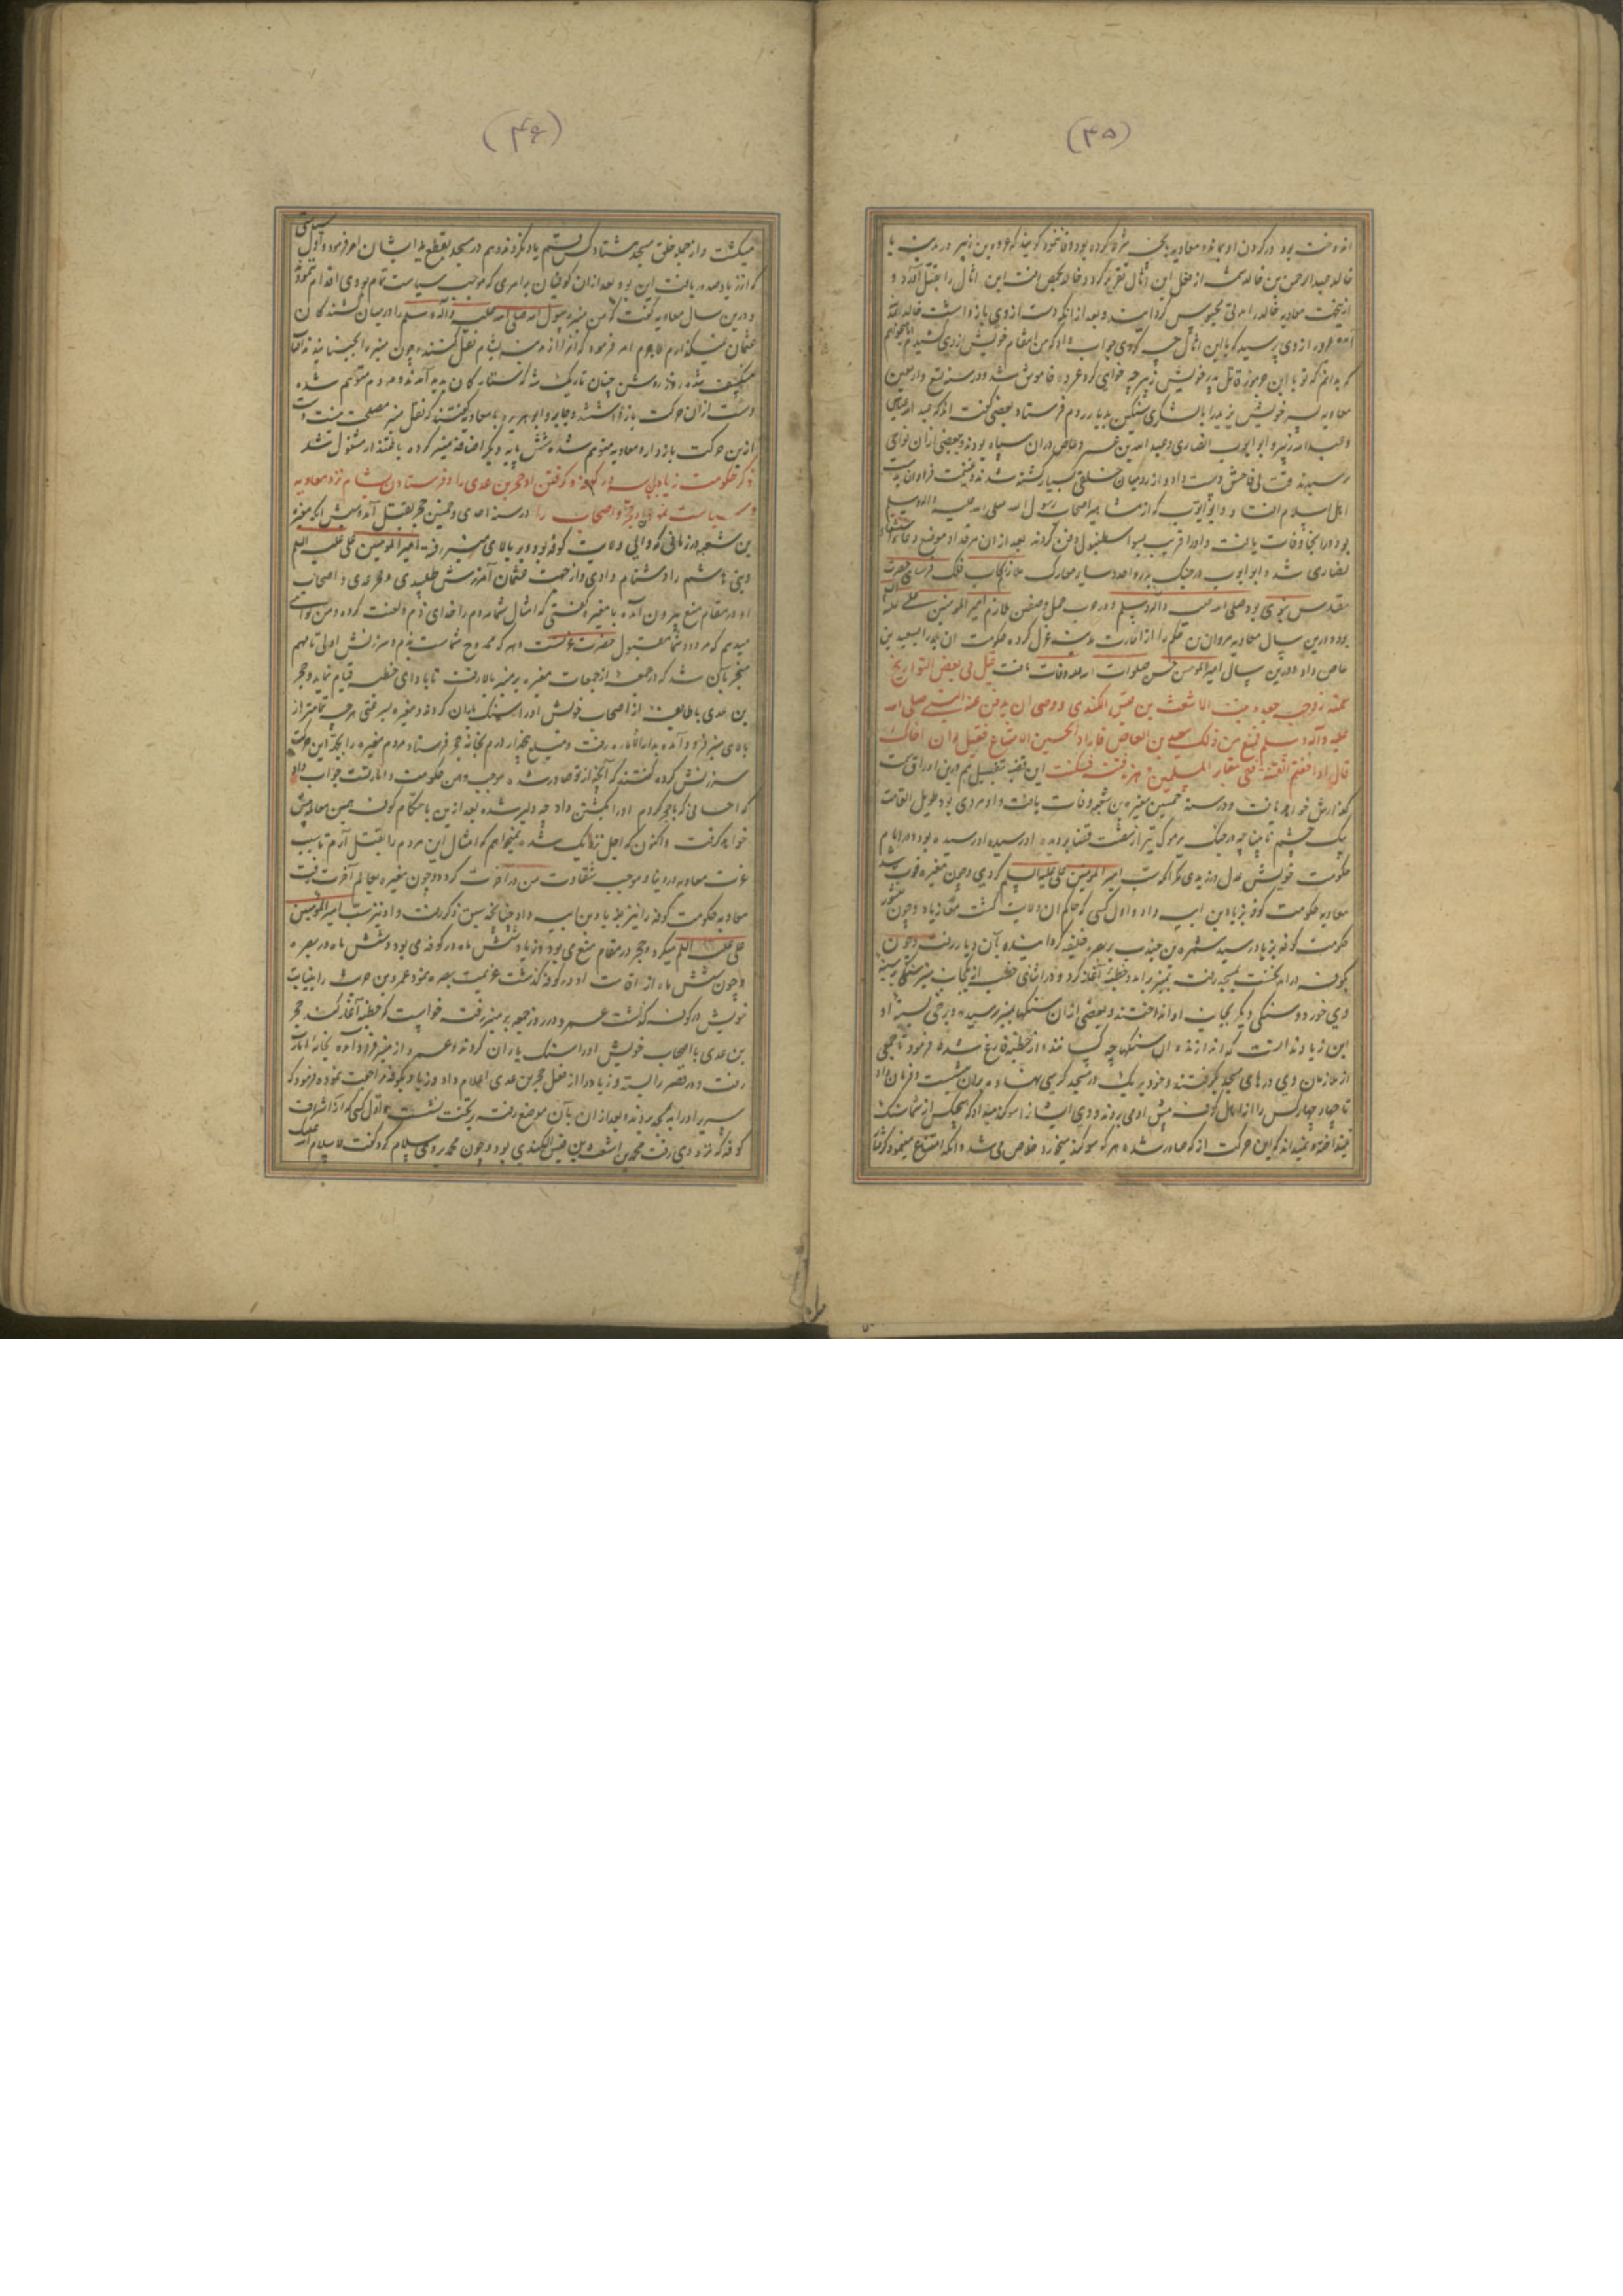 (۴۵)
خالد عبدالرحمن بن خالد
معاویه خالد را مدتی محبوس گردانید و بعد از آنکه دست از وی بازداشت
که بدانم که تو با ابن جرموز قاتل پدر خویش زبیر چه خواهی کرد عروه خاموش شد و در سنه تسع و اربعین
معاویه پسر خویش یزید را با لشکری سنگین بدیار روم فرستاد بعضی گفته اند که عبد الله عباس
و عبد الله زبیر و ابو ایوب انصاری و عبد الله بن عمر و عاص در آن سپاه بودند و بعضی از آن نواحی
رسیدند قتالی فاحش دست داد و از رومیان خلقی بسیار کشته شدند و غنیمت فراوان بدست
اهل اسلام افتاد و ابو ایوب که از مشاهیر اصحاب رسول الله صلی الله علیه و آله وسلم
بود در آنجا وفات یافت و او را قریب بسور استنبول دفن کردند بعد از آن مرقد او موضع دعا و استشفاء
نصاری شد و ابو ایوب در جنگ بدر و احد و سایر معارک ملازم رکاب فلک فرسای حضرت
مقدس نبوی بود صلی الله علیه و آله وسلم و در حرب جمل و صفین ملازم امیر المومنین علی علیه السلام
بود و درین سال معاویه مروان بن حکم را از امارت مدینه عزل کرده حکومت آن بلده را بسعید بن
عاص داد و درین سال امیر المومنین حسن صلوات الله علیه وفات یافت قیل فی بعض التواریخ
سمته زوجته جعده بنت الاشعث بن قیس الکندی و وصی ان یدفن عند النبی صلی الله
علیه و آله وسلم فمنع من ذلک سعید بن العاص فاراد الحسین الامتناع فقیل له ان اخاک
قال اذا خفتم الفتنة ففی مقابر المسلمین این قضیه بتفصیل هم درین اوراق
گزارش خواهد یافت و در سنه خمسین مغیره بن شعبه وفات یافت و او مردی بود طویل القامت
یک چشم نابینا چه در جنگ یرموک تیر از شست قضا بدیده او رسیده بود و در ایام
حکومت خویش عدل ورزیدی مگر آنکه سب امیر المومنین علی علیه السلام کردی و چون مغیره فوت شد
معاویه حکومت کوفه بزیاد بن ابیه داد و اول کسی که حاکم آن دو ولایت گشت زیاد بود و چون منشور
حکومت کوفه بزیاد رسید سمره بن جندب را در بصره خلیفه گردانیده بآن دیار رفت و چون
بکوفه در آمد نخست بمسجد رفت بمنبر بر آمد و خطبه آغاز کرد و در اثنای خطبه از یک جانب منبر سنگی بر سینه
وی خورد و سنگی دیگر بجانب او انداختند و بعضی از آن سنگها بمنبر رسید
این زیاد ندانست که اندازنده آن سنگها چه کسانند از خطبه فارغ شده فرمود تا جمعی
از ملازمان وی درهای مسجد بگرفتند و خود بر در مسجد کرسی نهاده بر آن نشست و فرمان داد
تا چهار چهار کس را از اهالی کوفه پیش او می بردند و وی ایشان را سوگند میداد که هیچ یک از شما سنگ
نینداخته و نمیداند که این حرکت از که صادر شده هر که سوگند میخورد خلاص می شد و آنکه امتناع مینمود گرفتار
(۴۶)
میگشت و از جمله خلق مسجد هشتاد کس قسم یاد نکردند و هم در مسجد بقطع ید ایشان امر فرمود و اول سیاستی
که از زیاد صدور یافت این بود بعد از آن کوفیان بر امری که موجب سیاست تمام بودی اقدام ننمودند
و درین سال معاویه گفت که من منبر رسول الله صلی الله علیه و آله وسلم را در میان کشندگان
عثمان نمیگذارم لاجرم امر فرمود که آنرا از مدینه بشام نقل کنند و چون منبر را بجنبانیدند آفتاب
منکسف شده روز روشن چنان تاریک شد که ستارگان پدید آمدند و مردم متوهم شده
دست از آن حرکت بازداشتند و جابر و ابو هریره با معاویه گفتند که نقل منبر مصلحت نیست دست
ازین حرکت بازدار و معاویه متوهم شده شش پایه دیگر اضافه منبر کرده باعتذار مشغول شد
ذکر حکومت زیاد بن ابیه در کوفه و گرفتن او حجر بن عدی را و فرستادن بشام نزد معاویه
و سیاست حجر و اصحاب را در سنه احدی و خمسین حجر بقتل آمد و سببش آنکه مغیره
بن شعبه در زمانی که والی ولایت کوفه بود بر بالای منبر رفته امیر المومنین علی علیه السلام
و بنی هاشم را دشنام دادی و از جهت عثمان آمرزش طلبیدی و حجر عدی و اصحاب
او در مقام منع بیرون آمده با مغیره گفتی که امثال شما مردم را خدای ذم و لعنت کرده و من گواهی
میدهم که مردود شما مقبول حضرت عزتست و هر که ممدوح شماست بذم و سرزنش اولی تا مهم
منجر بآن شد که در جمعه از جمعات مغیره بر منبر بالا رفت تا بادای خطبه قیام نماید و حجر
بن عدی با طایفه از اصحاب خویش او را سنگ باران کردند و مغیره بسرعتی هر چه تمامتر از
بالای منبر فرود آمده بدار الاماره رفت و مبلغ پنجهزار درم بخانه حجر فرستاد مردم مغیره را بجهت این حرکت
سرزنش کرده گفتند که آنچه از تو صادر شد موجب وهن حکومت و امارتست جواب داد
که احسانی که با حجر کردم او را بکشتن داد چه دلیر شده بعد ازین با حکام کوفه همین معامله پیش
خواهد گرفت و اکنون که اجل نزدیک شده نمیخواهم که امثال این مردم را بقتل آرم تا سبب
عزت معاویه در دنیا و موجب شقاوت من در آخرت گردد و چون مغیره بعالم آخرت رفت
معاویه حکومت کوفه را نیز بزیاد بن ابیه داد چنانچه سبق ذکر یافت و او نیز سب امیر المومنین
علی علیه السلم میکرد و حجر در مقام منع می بود و زیاد شش ماه در کوفه می بود و شش ماه در بصره
و چون شش ماه از اقامت او در کوفه گذشت عزیمت بصره نمود و عمرو بن حریث را بنیابت
خویش در کوفه گذاشت عمرو در روز جمعه بر منبر رفت خواست که خطبه آغاز کند حجر
بن عدی با اصحاب خویش او را سنگ باران کردند و عمرو از منبر فرود آمده بخانه امارت
رفت و در قصر را بسته و زیاد را از فعل حجر بن عدی اعلام داد و زیاد بکوفه مراجعت نموده فرمود که
سریر او را بمسجد بردند و بعد از آن بآن موضع رفته بر تخت نشست و اول کسی که از اشراف
کوفه که نزد وی رفت محمد بن اشعث بن قیس الکندی بود و چون محمد بر وی سلام کرد گفت لا سلام الله علیک